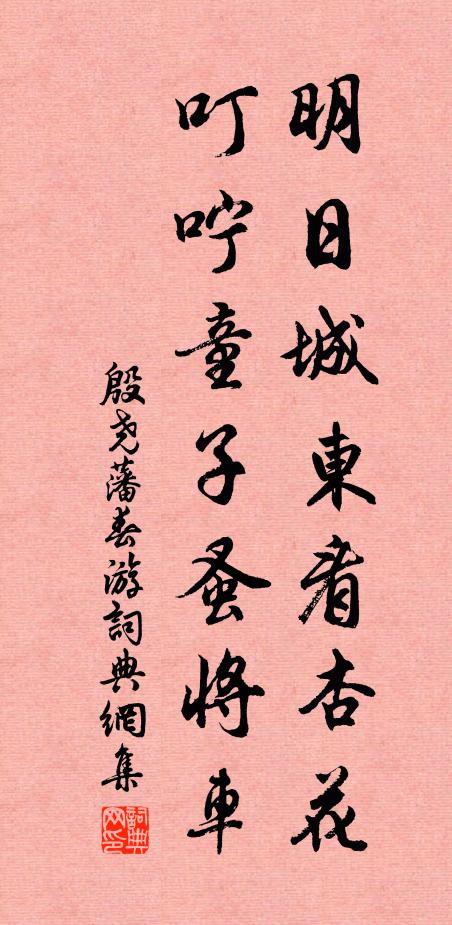 明日城東看杏花
叮咛童子蚤將車
殷尧藩春游詞典網集
詞典网印